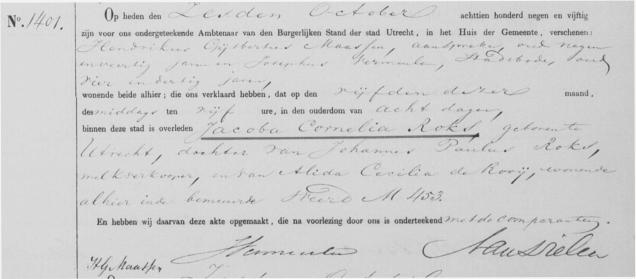 No. 1401.
Op heden den Zesden October achttien honderd negen en vijftig
zijn voor ons ondergeteekende Ambtenaar van den Burgerlijken Stand der stad Utrecht, in het Huis der Gemeente, verschenen:
Hendrikus Gijsbertus Maassen, aanspreker, oud negen
en veertig jaren en Josephus Vermeulen, Stadsbode, oud
vier en dertig jaren,
wonende beide alhier; die ons verklaard hebben, dat op den vijfden dezer maand,
des middags ten vijf ure, in den ouderdom van acht dagen,
binnen deze stad is overleden Jacoba Cornelia Roks, geboren te
Utrecht, dochter van Johannes Paulus Roks,
melkverkooper, en van Alida Cecilia de Rooij, wonende
alhier in de bemuurde Weerd M 453.
En hebben wij daarvan deze akte opgemaakt, die na voorlezing door ons is onderteekend met de comparanten.
HG Maassen J Vermeulen